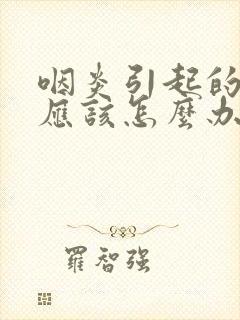 咽炎引起的
應該怎麼办
羅智强